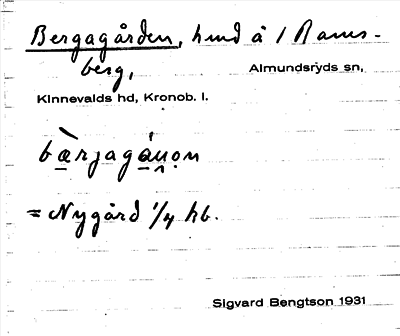 Bergagården, hmd å 1 Rams-
berg,
Almundsryds sn,
Kinnevalds hd, Kronob. l.
bærjagåu̯ọn
= Nygård 1/4 hb.
Sigvard Bengtson 1931